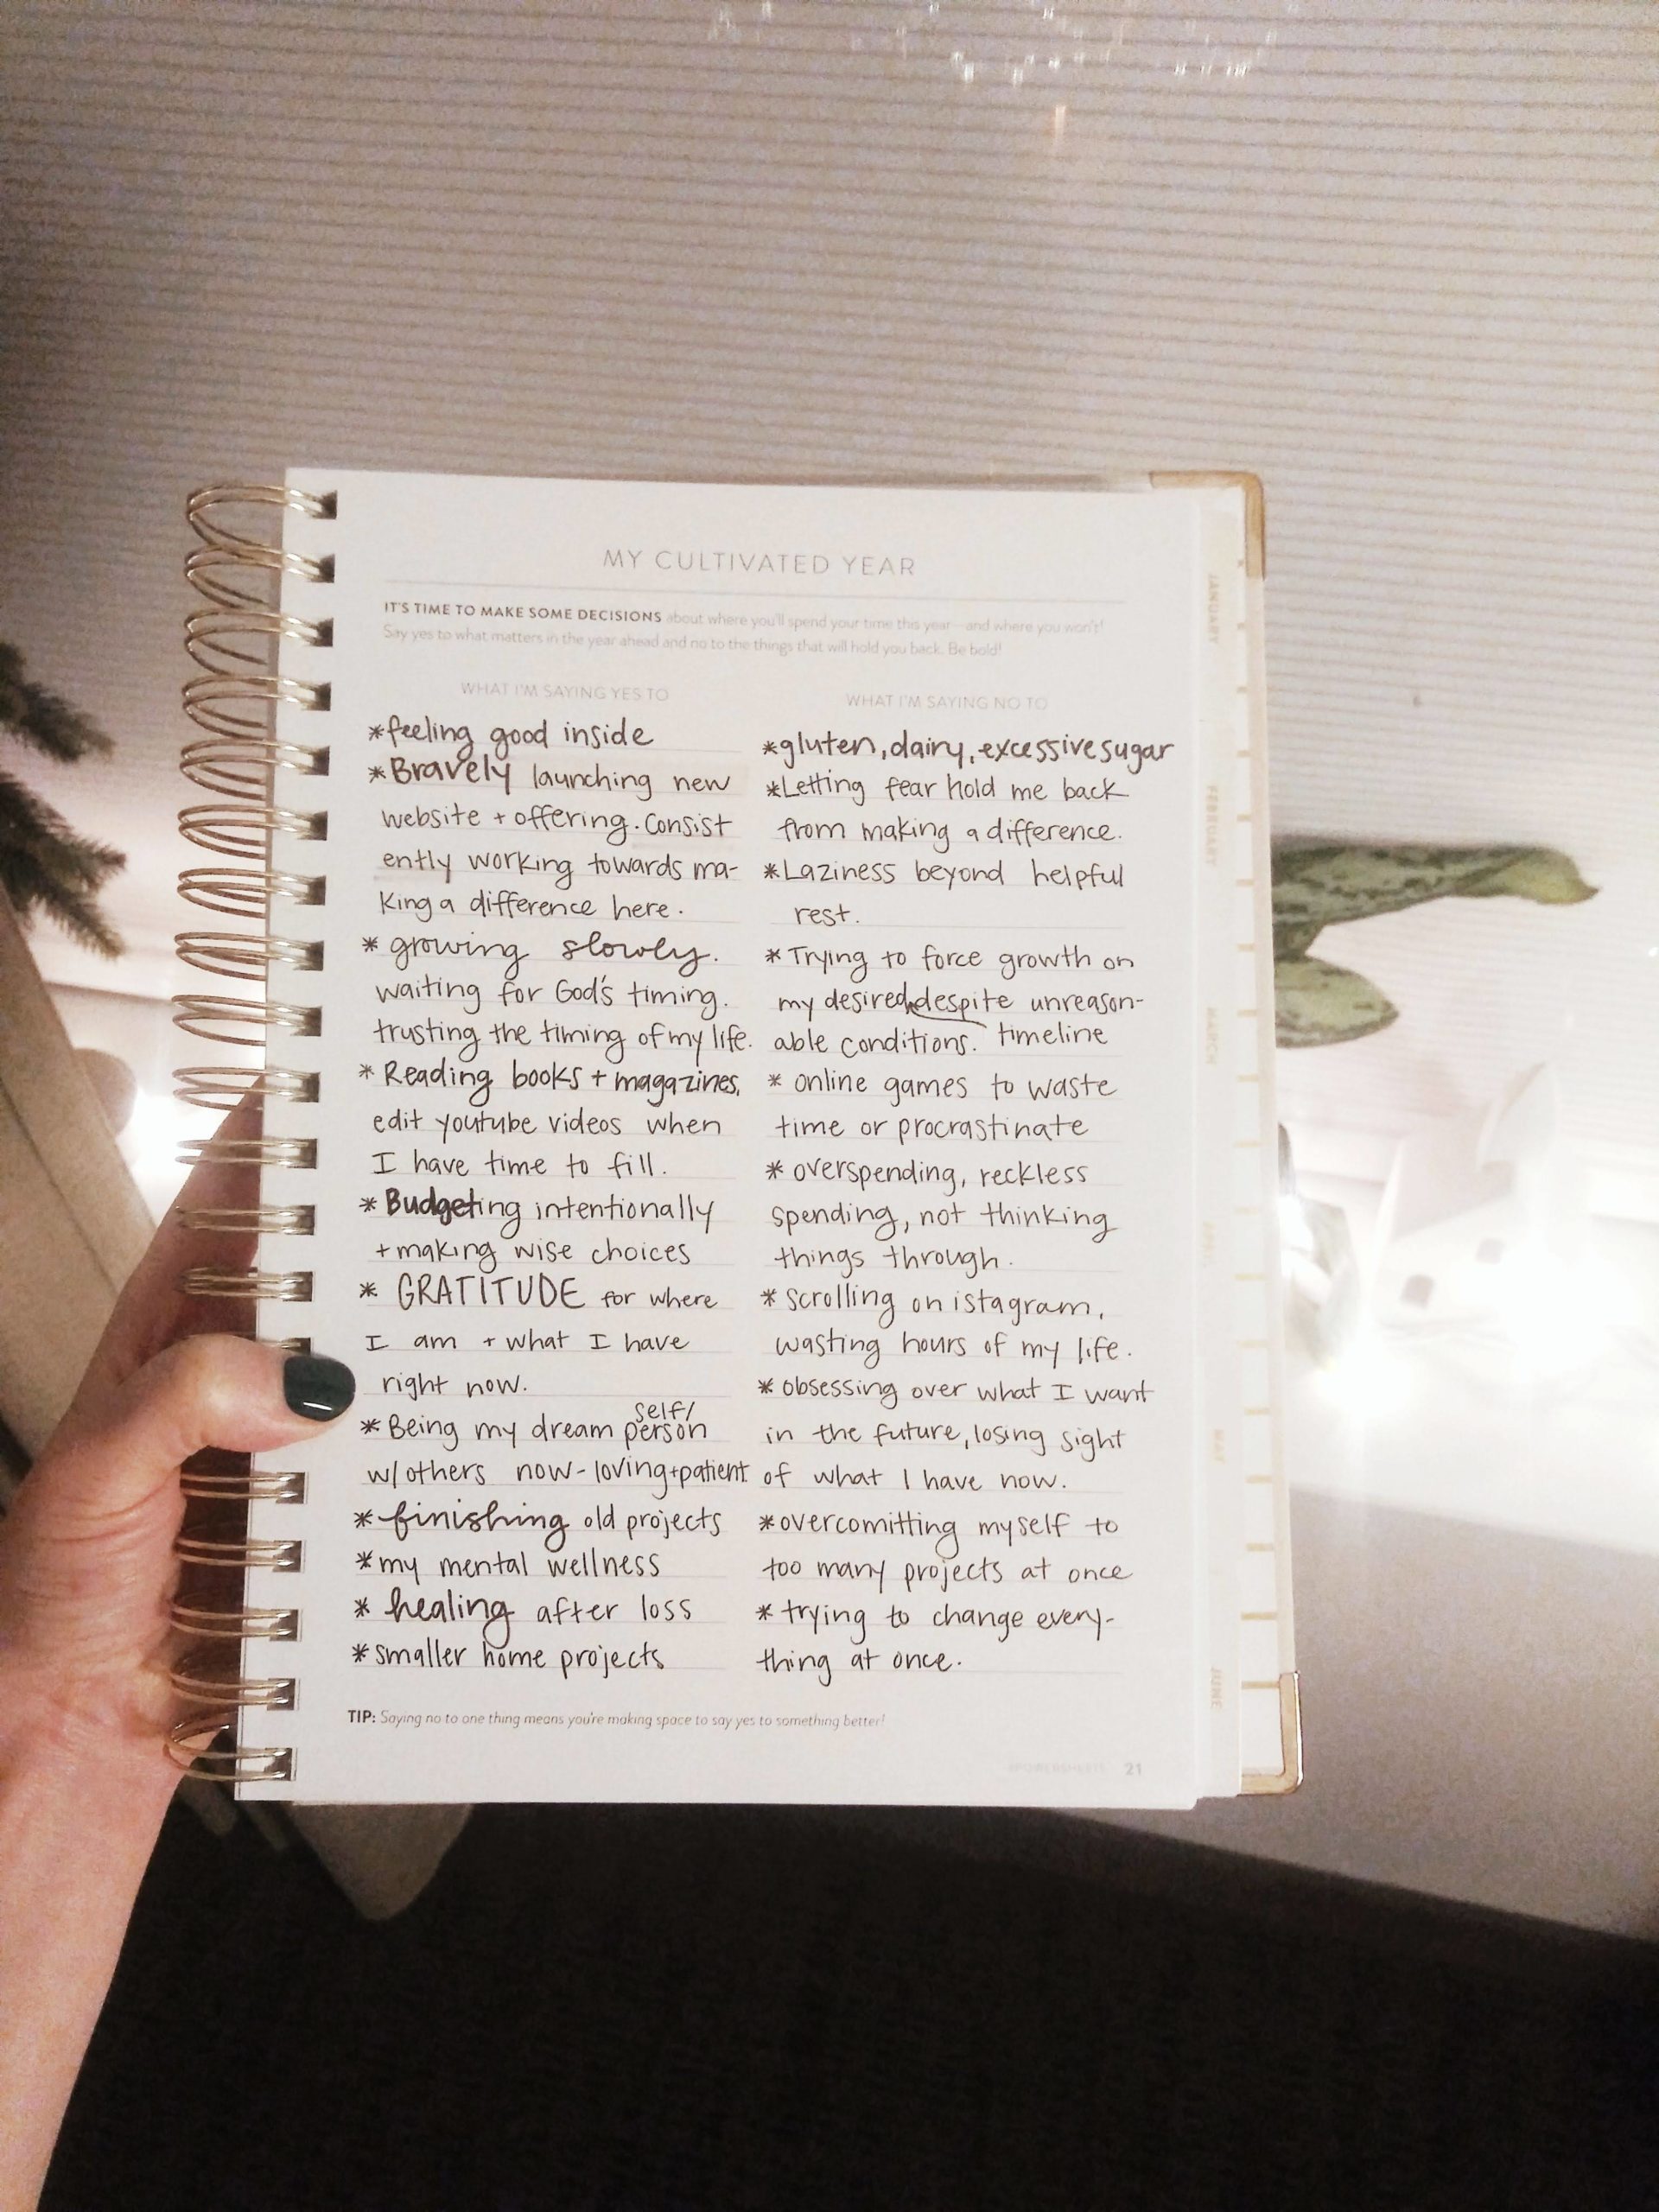 MY CULTIVATED YEAR
IT'S TIME TO MAKE SOME DECISIONS about where you'll spend your time this year—and where you won't!
Say yes to what matters in the year ahead and no to the things that will hold you back. Be bold!
WHAT I'M SAYING YES TO
*feeling good inside
*Bravely launching new
website + offering. Consist
ently working towards ma-
king a difference here.
* growing slowly.
waiting for God's timing.
trusting the timing of my life.
* Reading books + magazines,
edit youtube videos when
I have time to fill.
* Budgeting intentionally
+ making wise choices
* GRATITUDE for where
I am + what I have
right now.
self/
* Being my dream person
w/others now - loving + patient
* finishing old projects
* my mental wellness
* healing after loss
* smaller home projects
WHAT I'M SAYING NO TO
*gluten, dairy, excessive sugar
*Letting fear hold me back
from making a difference.
*Laziness beyond helpful
rest.
* Trying to force growth on
my desired despite unreason-
able conditions. timeline
* online games to waste
time or procrastinate
* overspending, reckless
spending, not thinking
things through.
* scrolling on istagram,
wasting hours of my life.
* obsessing over what I want
in the future, losing sight
of what I have now.
*overcomitting myself to
too many projects at once
* trying to change every-
thing at once.
TIP: Saying no to one thing means you're making space to say yes to something better!
POWERSHEETS 21
JANUARY
FEBRUARY
MARCH
APRIL
MAY
JUNE